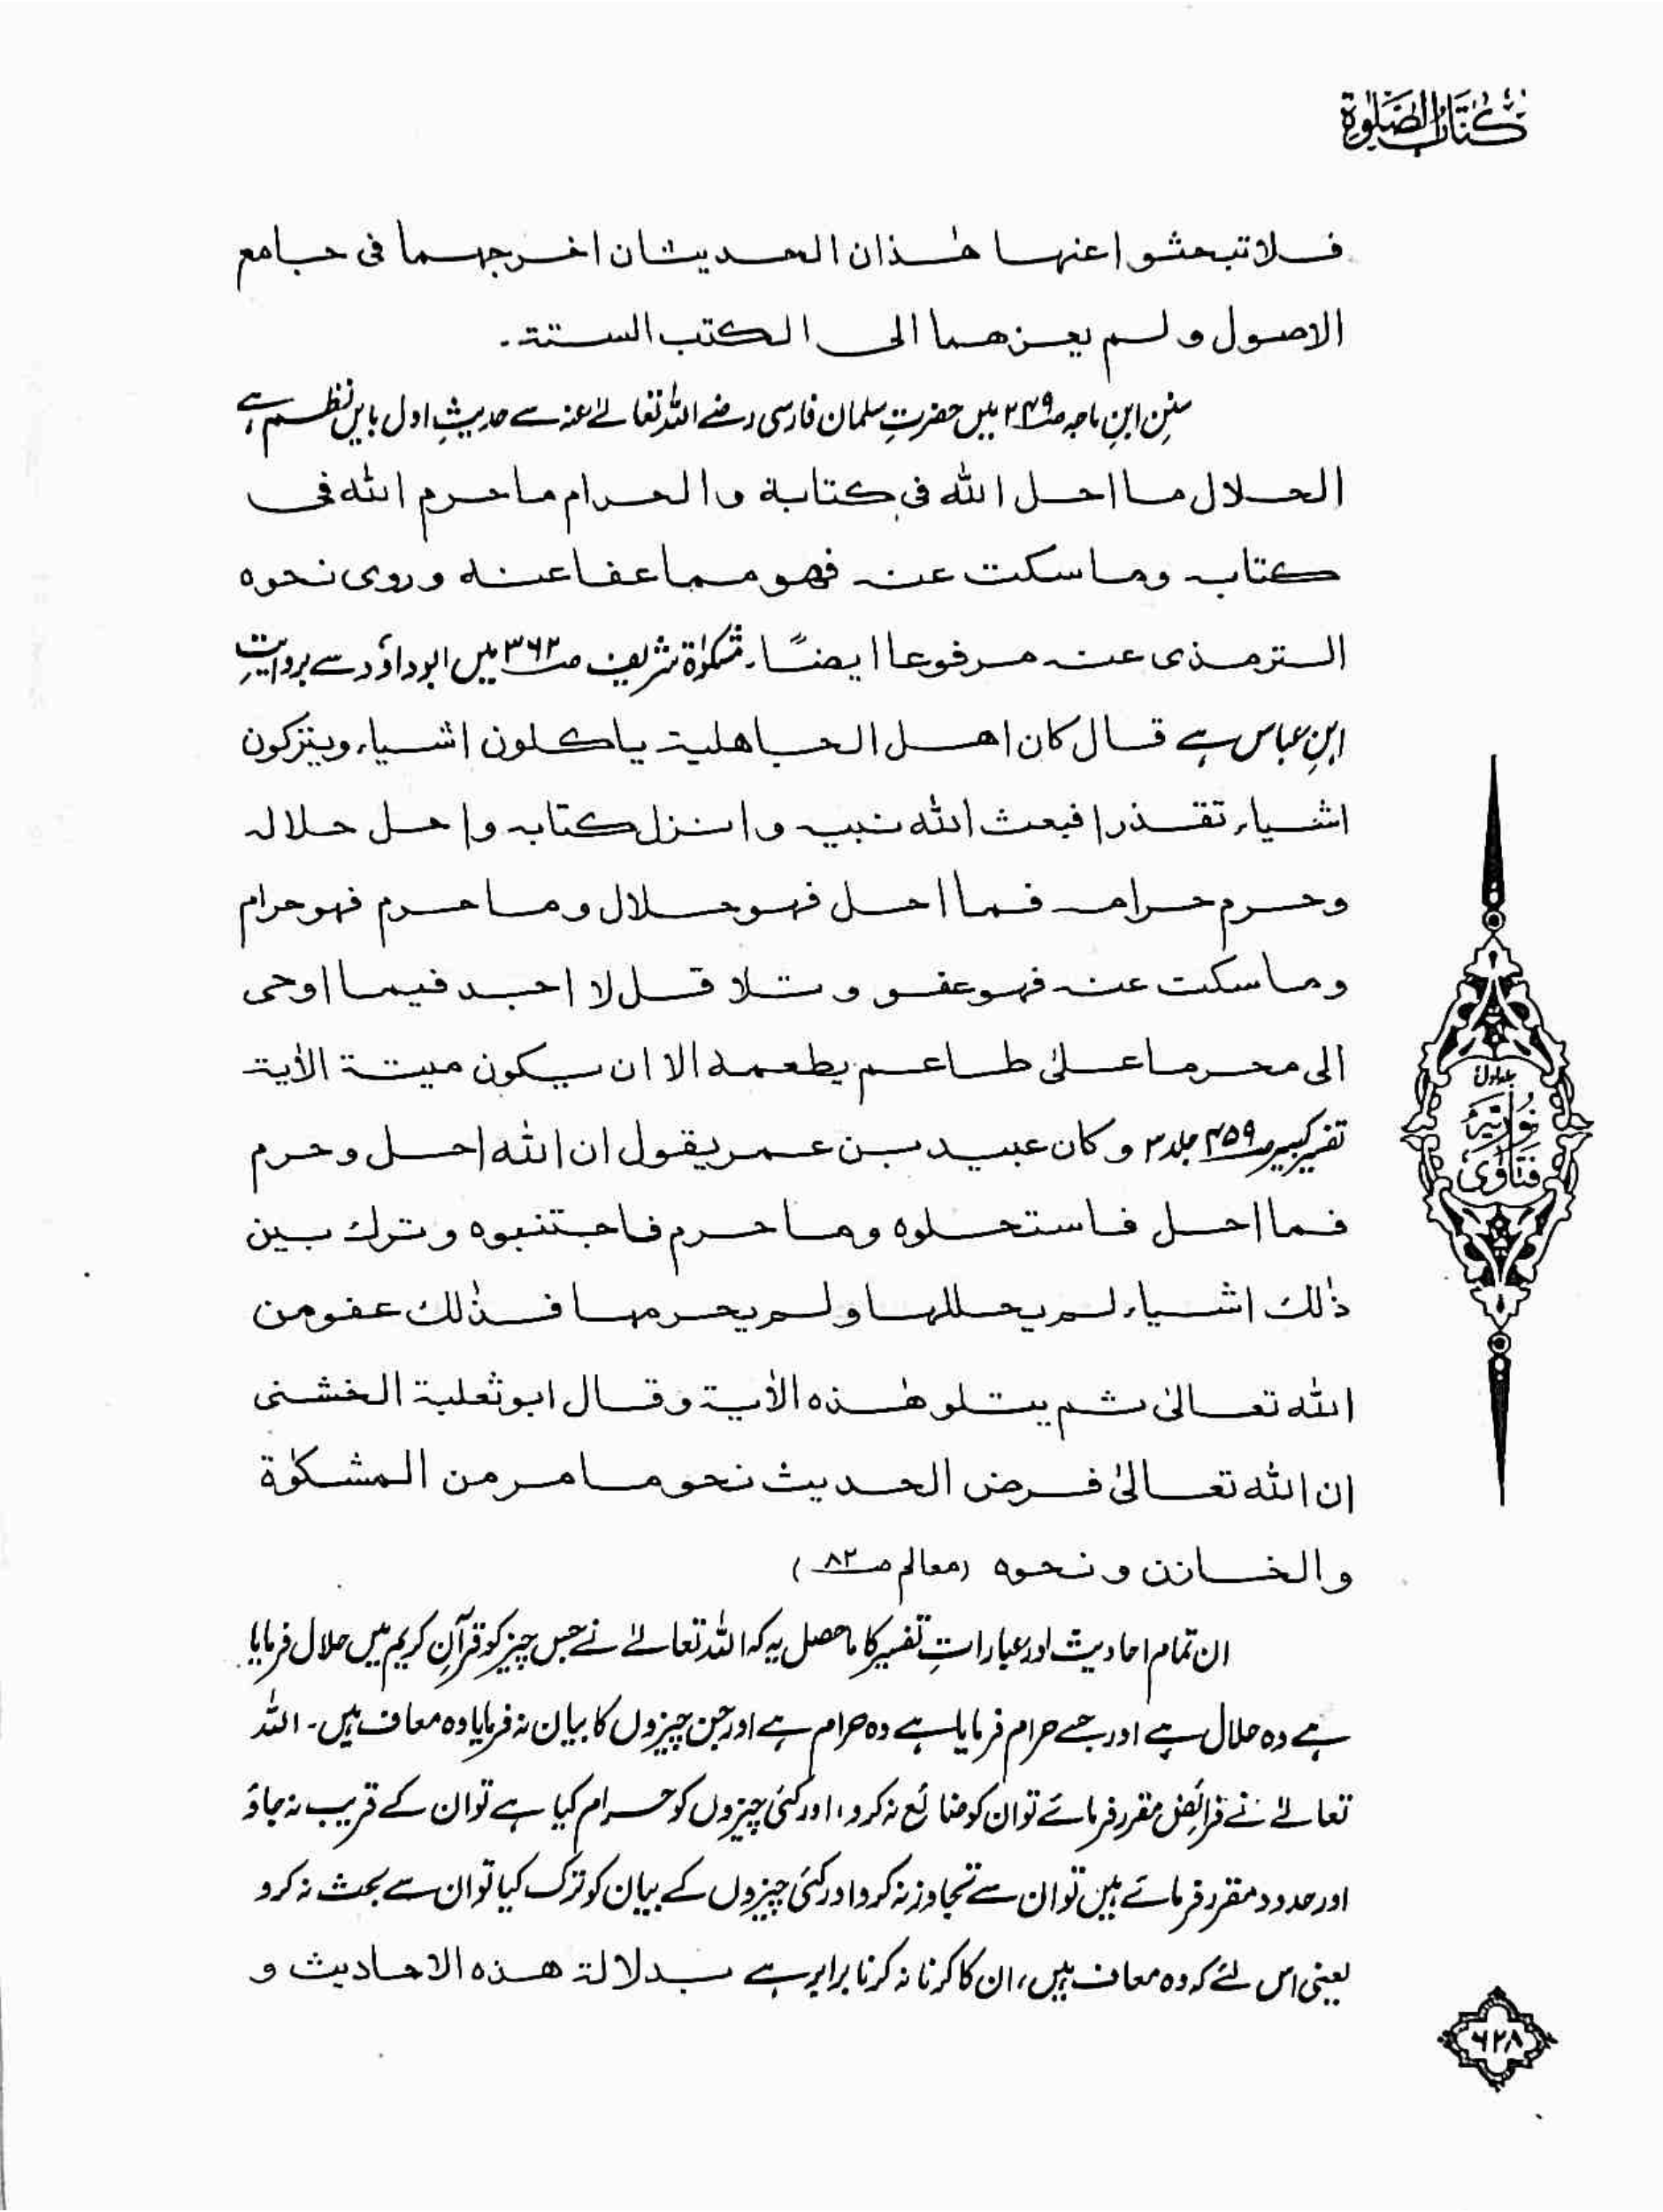 كتاب الصلوة
فلا تبحثوا عنها هٰذان الحديثان اخرجهما فى جامع
الاصول ولم يعزهما الى الكتب الستة۔
سننِ ابنِ ماجہ صـ۲۴۹ میں حضرتِ سلمان فارسی رضی اللہ تعالےٰ عنہ سے حدیثِ اول بایں نظم ہے
الحلال ما احل الله فى كتابة والحرام ما حرم الله فى
كتابه وما سكت عنه فهو مما عفا عنه وروى نحوه
الترمذى عنه مرفوعا ايضًا۔ مشکوٰة شریف صـ۳۶۲ میں ابوداؤد سے بروایتِ
ابنِ عباس ہے قال كان اهل الجاهلية ياكلون اشياء ويتركون
اشياء تقذرا فبعث الله نبيه وانزل كتابه واحل حلاله
وحرم حرامه فما احل فهو حلال وما حرم فهو حرام
وما سكت عنه فهو عفو وتلا قل لا اجد فيما اوحى
الى محرما علىٰ طاعم يطعمه الا ان يكون ميتة الاٰية
تفسیر کبیر صـ۴۵۹ جلد ۳ وكان عبيد بن عمر يقول ان الله احل وحرم
فما احل فاستحلوه وما حرم فاجتنبوه وترك بين
ذٰلك اشياء لم يحللها ولم يحرمها فذٰلك عفو من
الله تعالىٰ ثم يتلو هٰذه الاٰية وقال ابو ثعلبة الخشنى
ان الله تعالىٰ فرض الحديث نحو ما مر من المشكوٰة
والخازن ونحوه (معالم صـ۸۲)
ان تمام احادیث اور عباراتِ تفسیر کا ماحصل یہ کہ اللہ تعالےٰ نے جس چیز کو قرآنِ کریم میں حلال فرمایا
ہے وہ حلال ہے اور جسے حرام فرمایا ہے وہ حرام ہے اور جن چیزوں کا بیان نہ فرمایا وہ معاف ہیں۔ اللہ
تعالےٰ نے فرائض مقرر فرمائے تو ان کو ضائع نہ کرو، اور کئی چیزوں کو حرام کیا ہے تو ان کے قریب نہ جاؤ
اور حدود مقرر فرمائے ہیں تو ان سے تجاوز نہ کرو اور کئی چیزوں کے بیان کو ترک کیا تو ان سے بحث نہ کرو
یعنی اس لئے کہ وہ معاف ہیں، ان کا کرنا نہ کرنا برابر ہے بدلالة هذه الاحاديث و
جلد اول
فتاوٰی نوریہ
۶۲۸